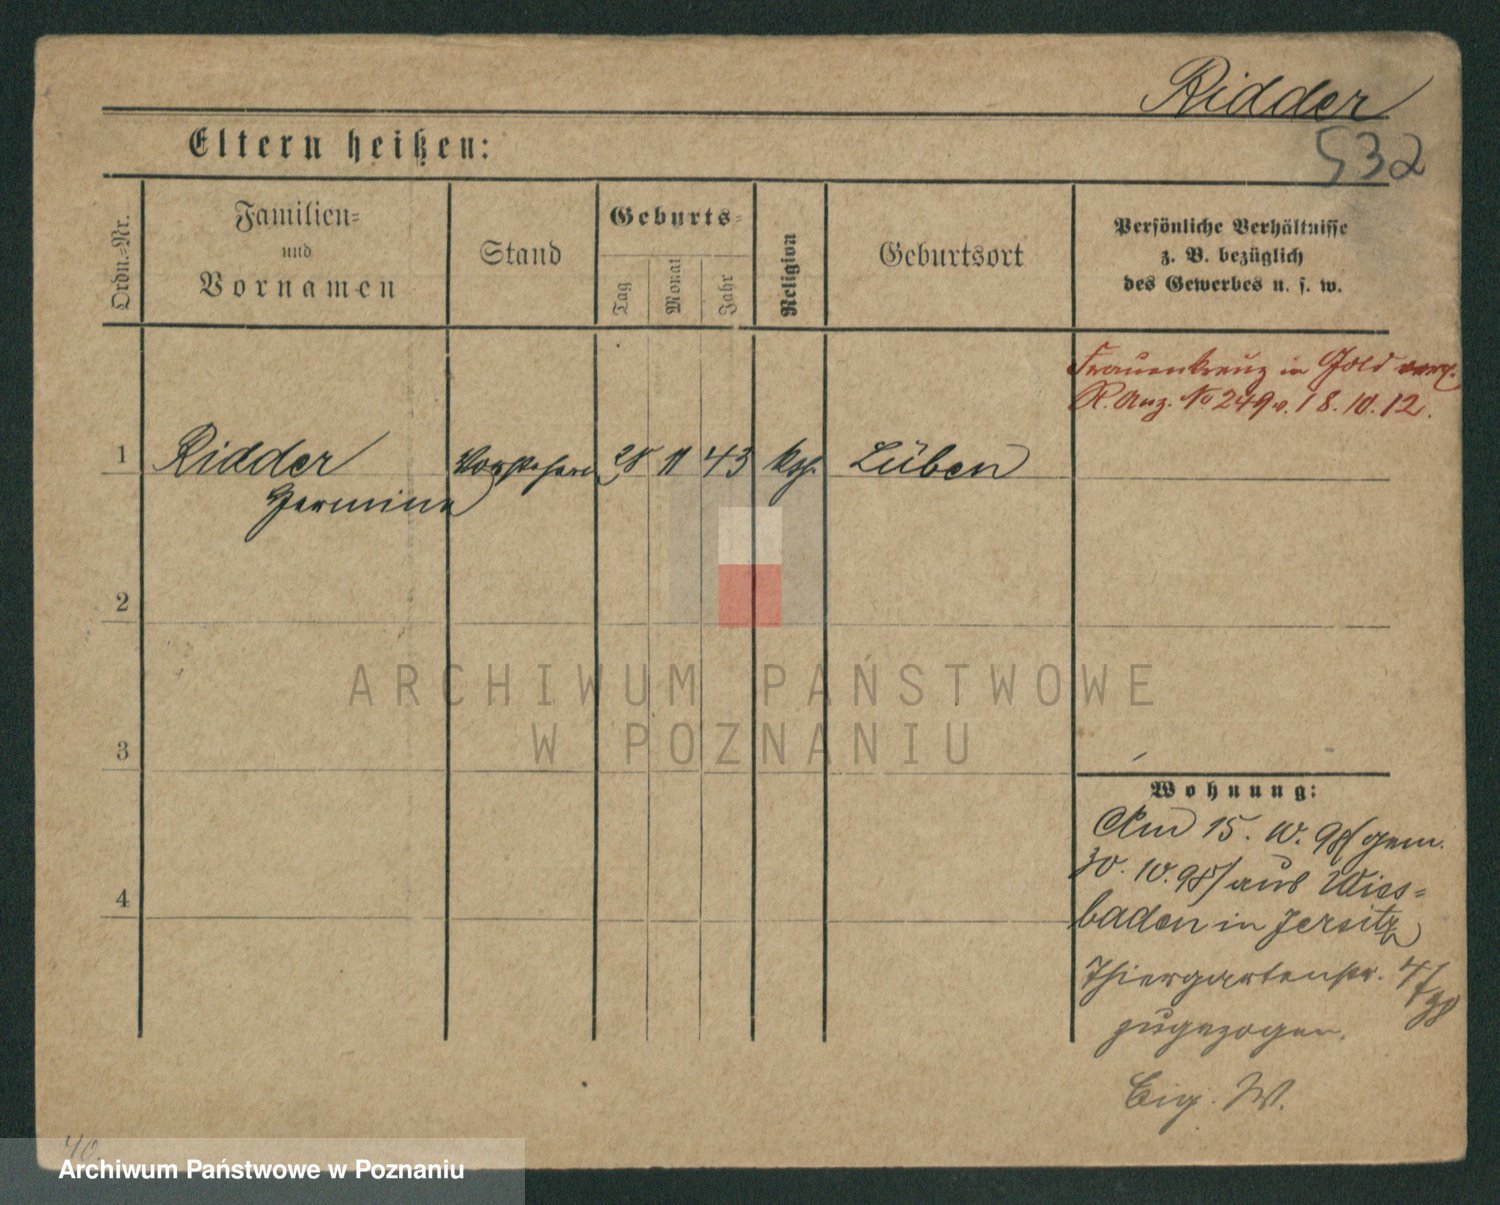 Ridder
532
Eltern heißen:
Ordn.-Nr.
Familien-
und
Vornamen
Stand
Geburts-
Tag
Monat
Jahr
Religion
Geburtsort
Persönliche Verhältnisse
z. B. bezüglich
des Gewerbes u. s. w.
Frauenkreuz in Gold
R. Anz. No 249 v. 18.10.12.
1
Ridder
28 11 43
Lüben
Hermine
2
3
4
ARCHIWUM PAŃSTWOWE
W POZNANIU
Wohnung:
Am 15. 10. 98/gem.
30. 10. 98/aus Wies=
baden in Jersitz
Thiergartenstr. 4
zugezogen.
Eig. W.
40.
Archiwum Państwowe w Poznaniu